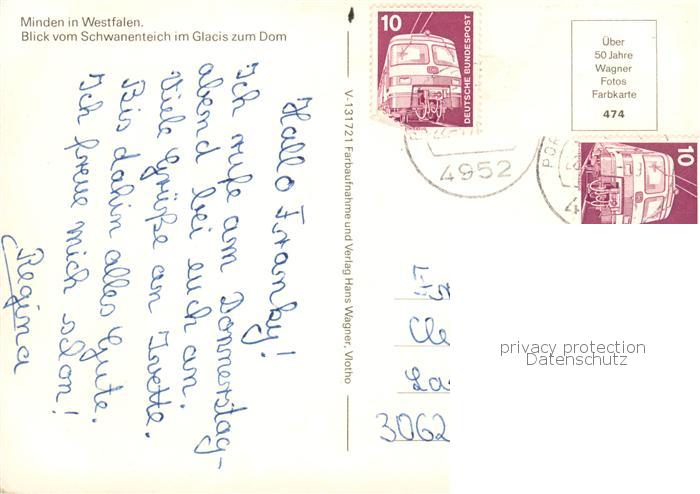 Minden in Westfalen.
Blick vom Schwanenteich im Glacis zum Dom
Hallo Franky!
Ich rufe am Donnerstag-
abend bei euch an.
Viele Grüße an Yvette.
Bis dahin alles Gute.
Ich freue mich schon!
Regina
V-131721 Farbaufnahme und Verlag Hans Wagner, Vlotho
10
DEUTSCHE BUNDESPOST
4952
Über
50 Jahre
Wagner
Fotos
Farbkarte
474
POR
4
10
Cle
La
3062
privacy protection
Datenschutz